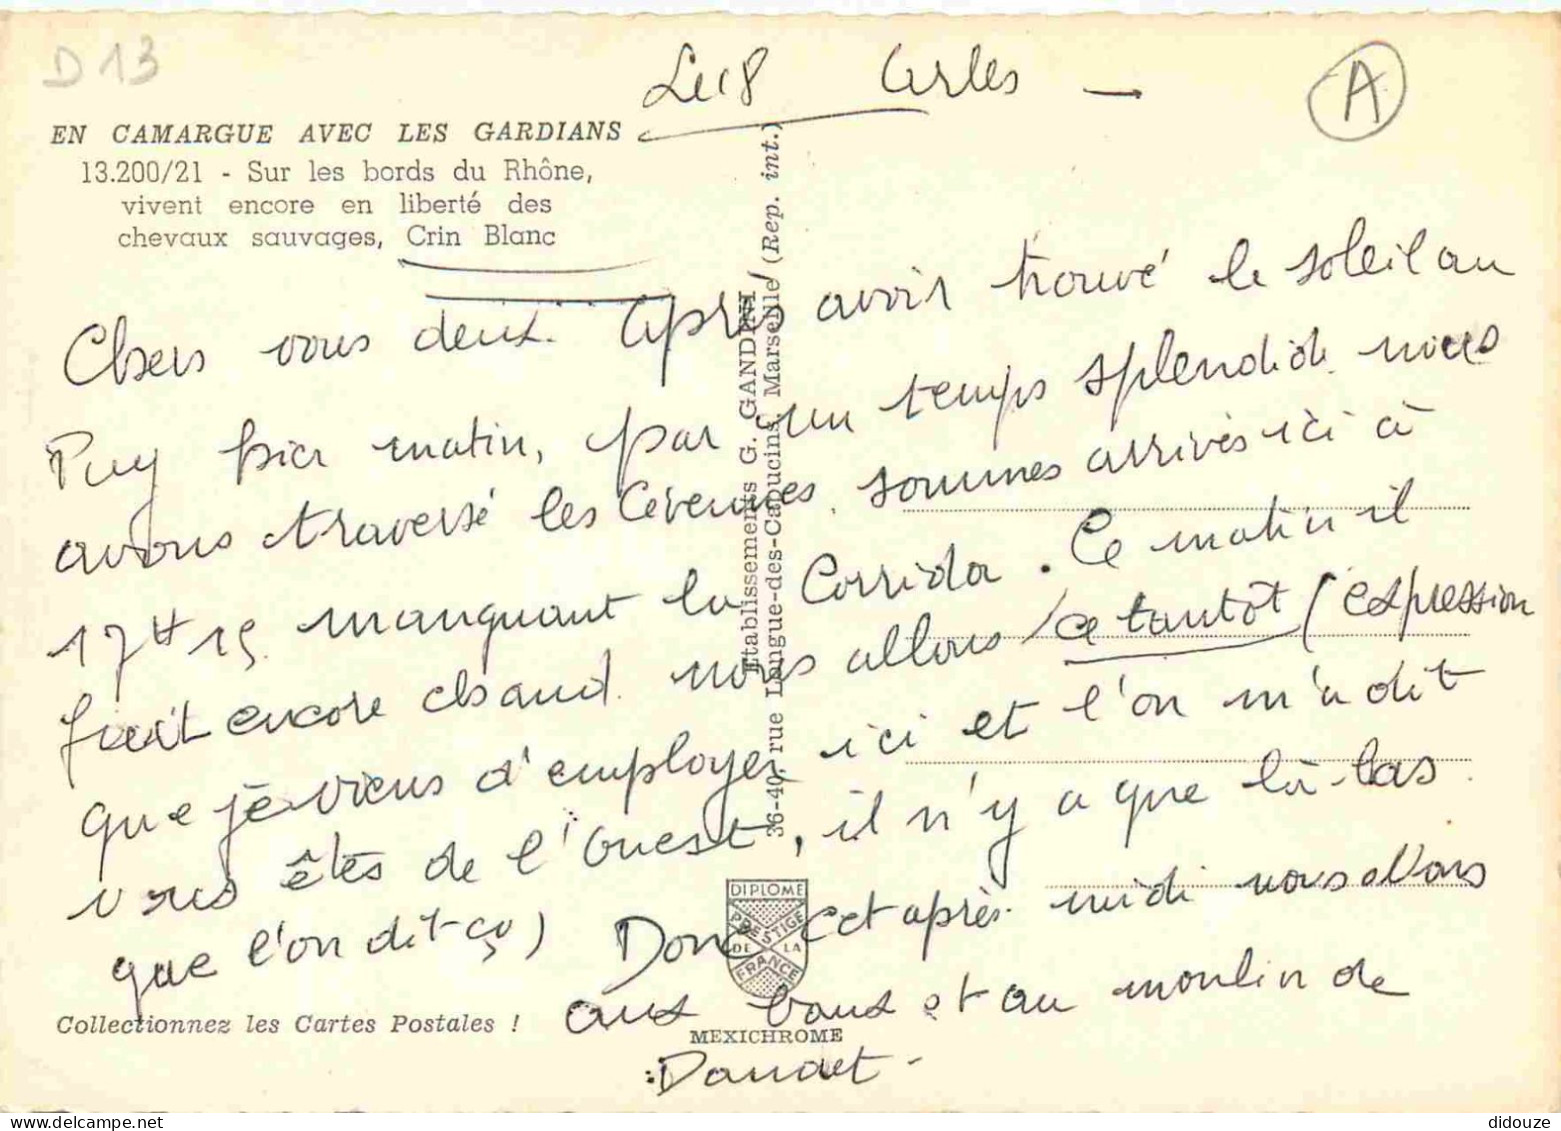 D13
Le 18 Arles —
A
EN CAMARGUE AVEC LES GARDIANS
13.200/21 - Sur les bords du Rhône,
vivent encore en liberté des
chevaux sauvages, Crin Blanc
Chers vous deux. Après avoir trouvé le soleil au
Puy hier matin, par un temps splendide nous
avons traversé les Cévennes. sommes arrivés ici à
17H15 manquant la Corrida. Ce matin il
fait encore chaud. nous allons ce tantôt (expression
que je viens d'employer ici et l'on m'a dit
vous êtes de l'Ouest, il n'y a que là-bas
que l'on dit ça) Donc cet après midi nous allons
aux baux et au moulin de
Daudet -
Etablissements G. GANDINI
36-40, rue Longue-des-Capucins, Marseille (Rep. int.)
DIPLOME
PRESTIGE
DE LA
FRANCE
MEXICHROME
Collectionnez les Cartes Postales !
didouze